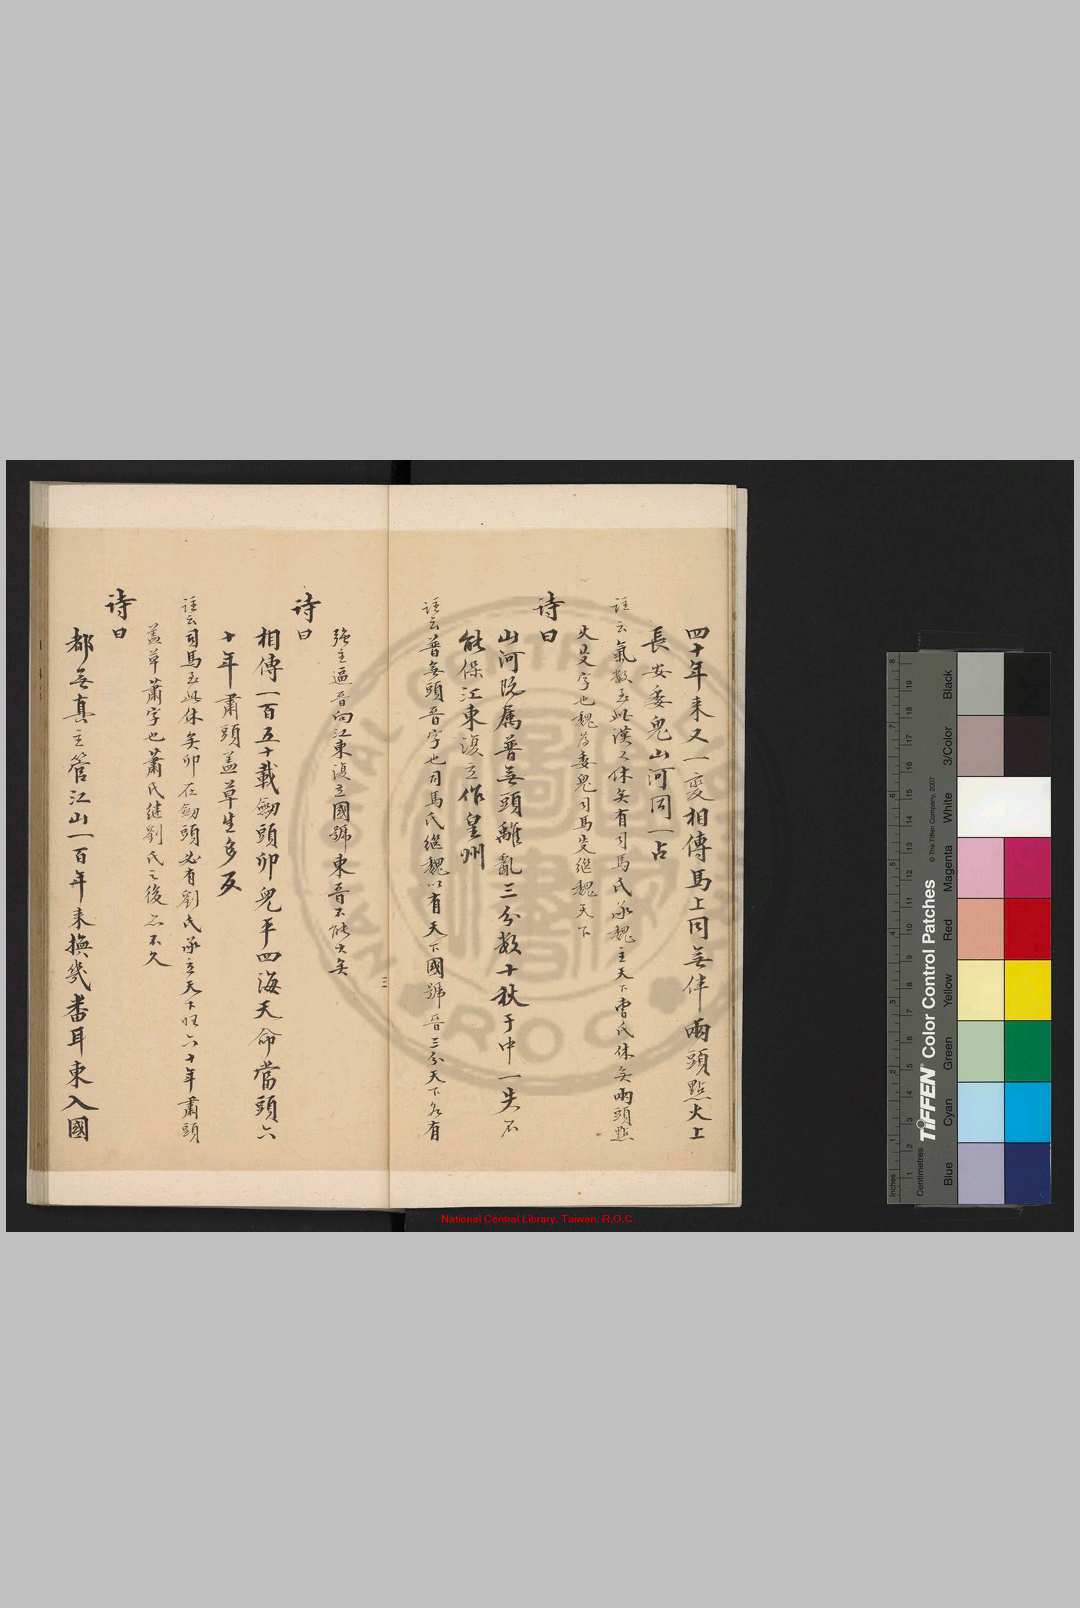 四十年来又一變相傳馬上同無伴兩頭點火上
長安委鬼山河同一占
註云氣数至此漢又休矣有司馬氏承魏王天下曹氏休矣兩頭點
火炎字也魏為委鬼司馬炎継魏天下
诗曰
山河既属普無頭離亂三分数十秋于中一失不
能保江東復立作皇州
註云普無頭晋字也司馬氏継魏以有天下國號晋三分天下各有
強主逼晋向江東復立國號東晋不能久矣
诗曰
相傳一百五十載劒頭卯兒平四海天命當頭六
十年肅頭盖草生多反
註云司馬至此休矣卯在劒頭必有劉氏承立天下旺六十年肅頭
盖草蕭字也蕭氏継劉氏之後亦不久
诗曰
都無真主管江山一百年来換幾番耳東入國
三
National Central Library, Taiwan, R.O.C.
TIFFEN Color Control Patches
© The Tiffen Company, 2007
Centimetres
Inches
Blue
Cyan
Green
Yellow
Red
Magenta
White
3/Color
Black